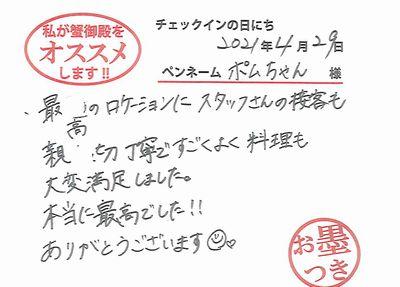 私が蟹御殿を
オススメ
します!!
チェックインの日にち
2021年4月29日
ペンネーム ポムちゃん 様
最高のロケーションに スタッフさんの接客も
親切丁寧ですごくよく 料理も
大変満足しました。
本当に最高でした!!
ありがとうございます
お墨
つき